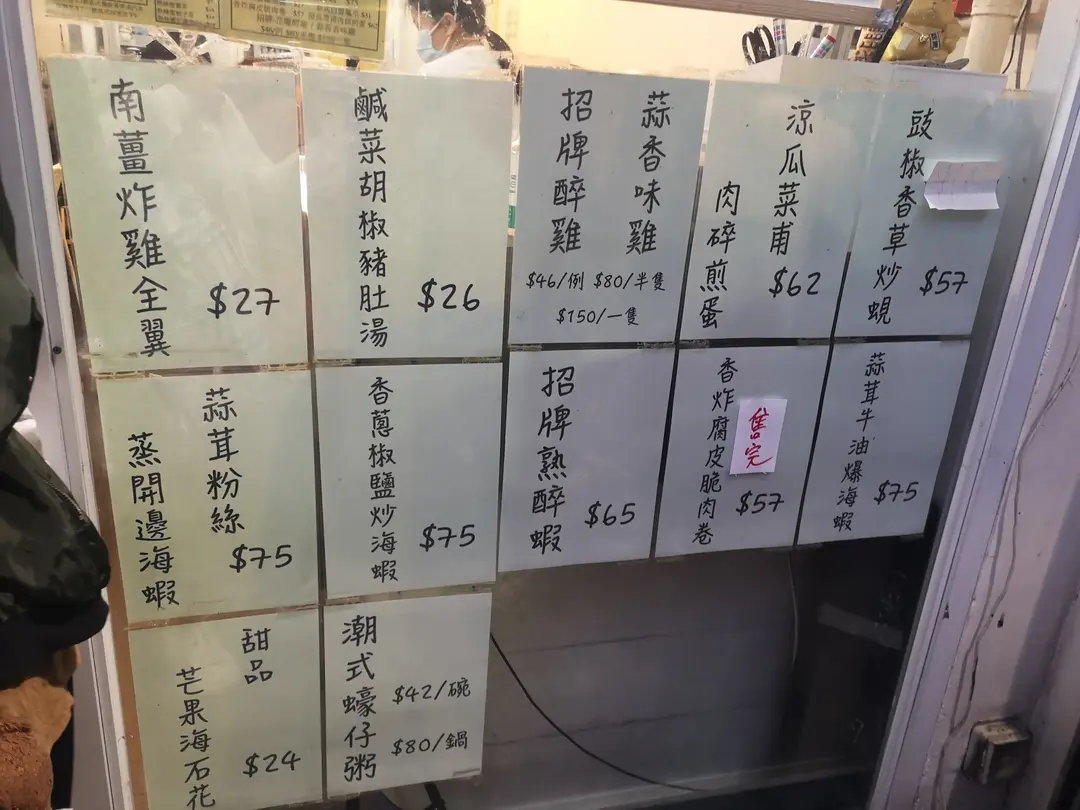 南薑炸雞全翼
$27
鹹菜胡椒豬肚湯
$26
蒜香味雞
招牌醉雞
$46/例 $80/半隻
$150/一隻
涼瓜菜甫
肉碎煎蛋
$62
豉椒香草炒蜆
$57
蒜茸粉絲
蒸開邊海蝦
$75
香蔥椒鹽炒海蝦
$75
招牌熟醉蝦
$65
香炸腐皮脆肉卷
售完
$57
蒜茸牛油爆海蝦
$75
甜品
芒果海石花
$24
潮式蠔仔粥
$42/碗
$80/鍋